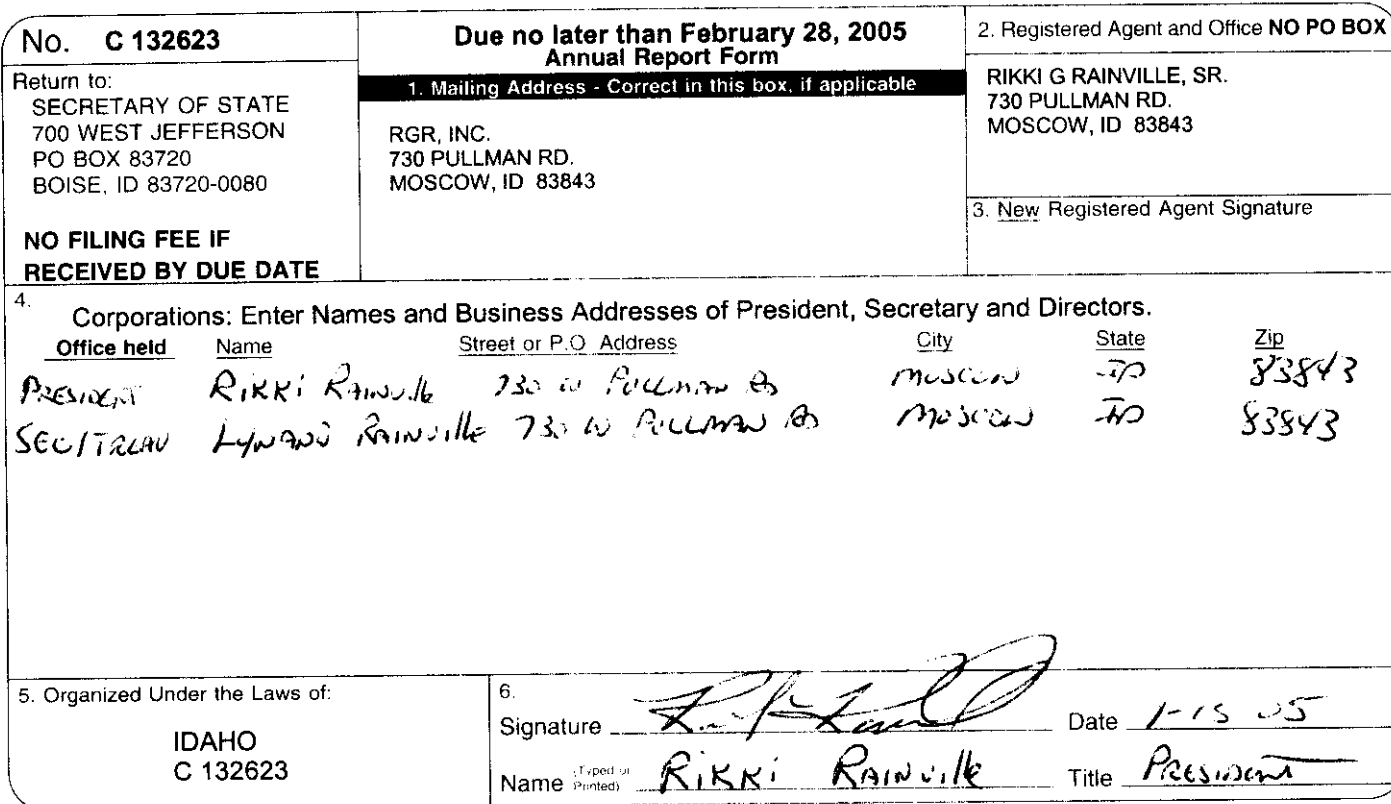 No. C 132623
Return to:
SECRETARY OF STATE
700 WEST JEFFERSON
PO BOX 83720
BOISE, ID 83720-0080
NO FILING FEE IF
RECEIVED BY DUE DATE
Due no later than February 28, 2005
Annual Report Form
1. Mailing Address - Correct in this box, if applicable
RGR, INC.
730 PULLMAN RD.
MOSCOW, ID 83843
2. Registered Agent and Office NO PO BOX
RIKKI G RAINVILLE, SR.
730 PULLMAN RD.
MOSCOW, ID 83843
3. New Registered Agent Signature
4.
Corporations: Enter Names and Business Addresses of President, Secretary and Directors.
Office held Name Street or P.O Address City State Zip
PRESIDENT RIKKI RAINVILLE 730 W PULLMAN RD MOSCOW ID 83843
SEC/TREAU LYNANN RAINVILLE 730 W PULLMAN RD MOSCOW ID 83843
5. Organized Under the Laws of:
IDAHO
C 132623
6.
Signature Date 1-15 05
Name (Typed or Printed) RIKKI RAINVILLE Title PRESIDENT